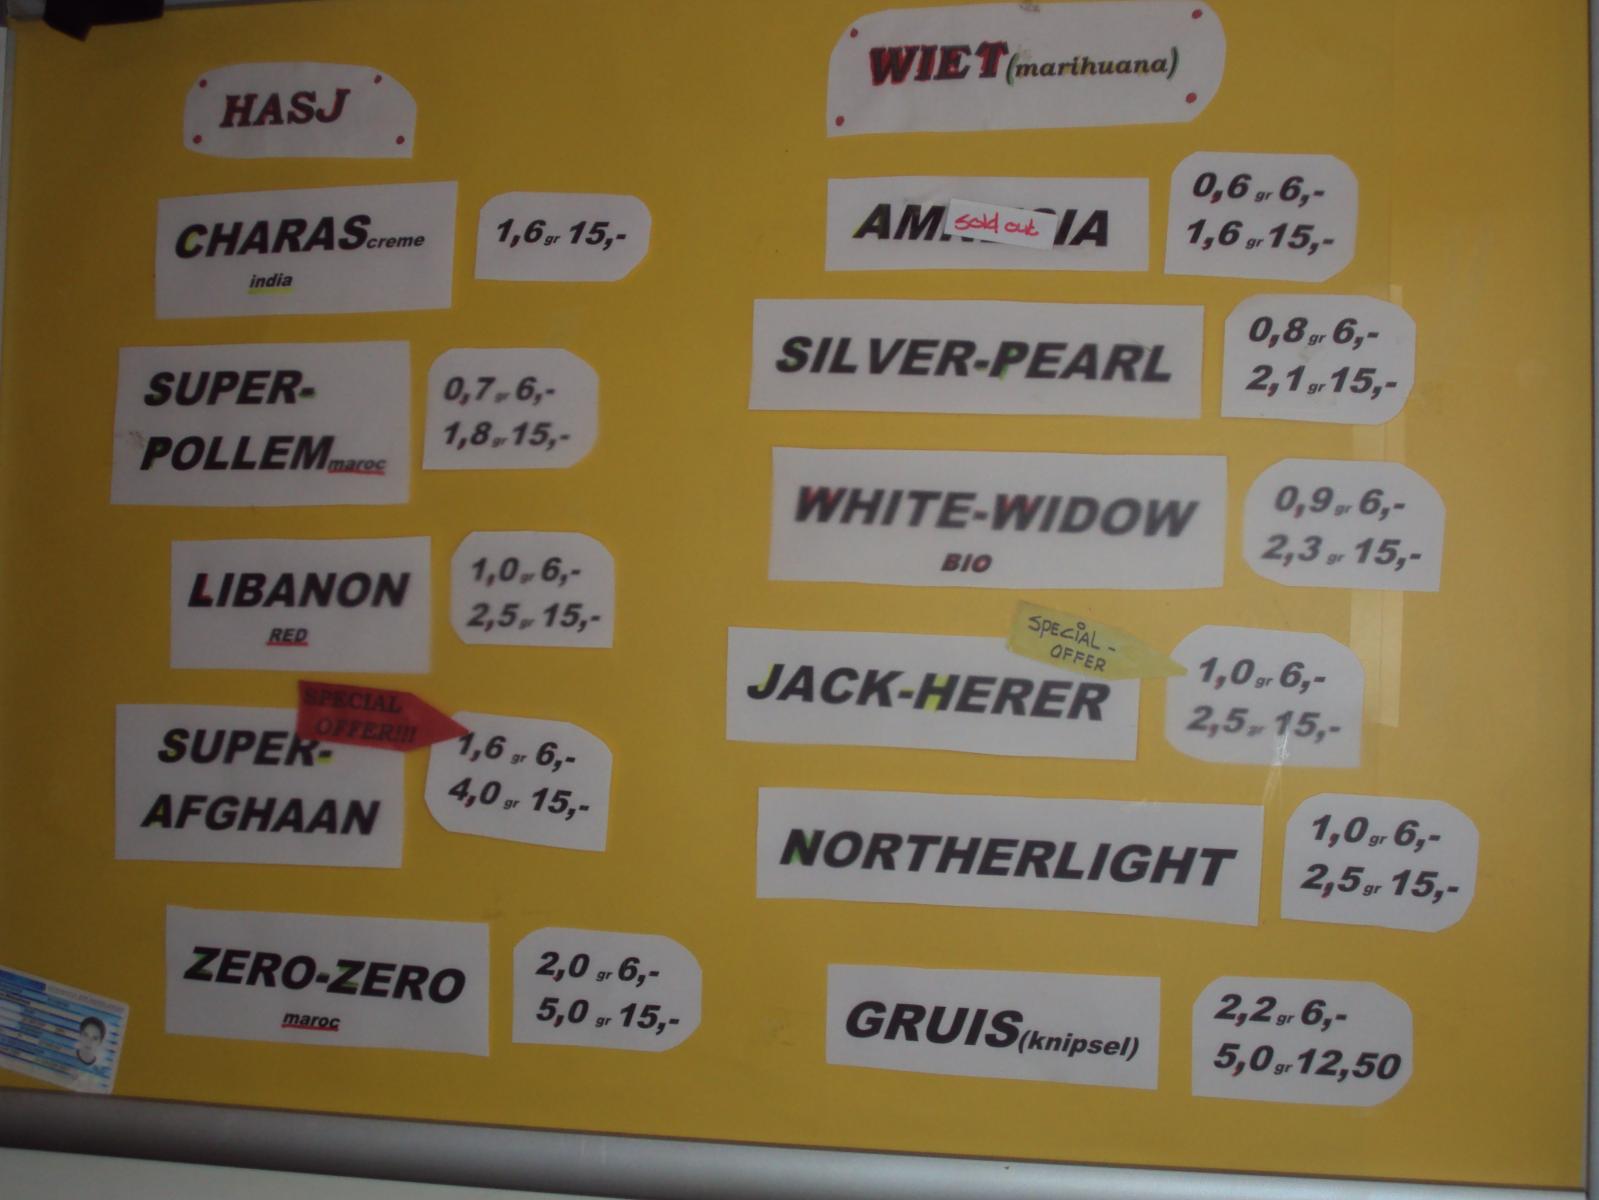 HASJ
CHARAS creme
india
1,6 gr 15,-
SUPER-
POLLEM maroc
0,7 gr 6,-
1,8 gr 15,-
LIBANON
RED
1,0 gr 6,-
2,5 gr 15,-
SPECIAL
OFFER!!!
SUPER-
AFGHAAN
1,6 gr 6,-
4,0 gr 15,-
ZERO-ZERO
maroc
2,0 gr 6,-
5,0 gr 15,-
WIET (marihuana)
sold out
0,6 gr 6,-
1,6 gr 15,-
SILVER-PEARL
0,8 gr 6,-
2,1 gr 15,-
WHITE-WIDOW
BIO
0,9 gr 6,-
2,3 gr 15,-
SPECIAL-
OFFER
JACK-HERER
1,0 gr 6,-
2,5 gr 15,-
NORTHERLIGHT
1,0 gr 6,-
2,5 gr 15,-
GRUIS (knipsel)
2,2 gr 6,-
5,0 gr 12,50